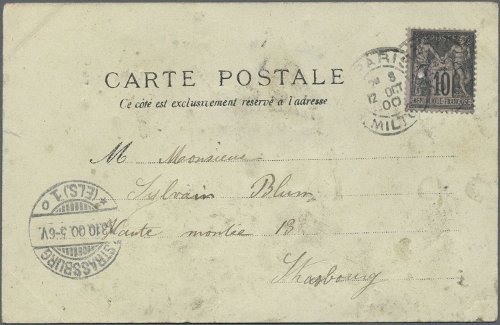 CARTE POSTALE
Ce côté est exclusivement réservé à l'adresse
PARIS
8
12 OCT
00
MILTO
10
M Monsieur
Sylvain Blum
Haute montée 13
Strasbourg
STRASSBURG
13.10.00.5-6V.
* (ELS) 1 o